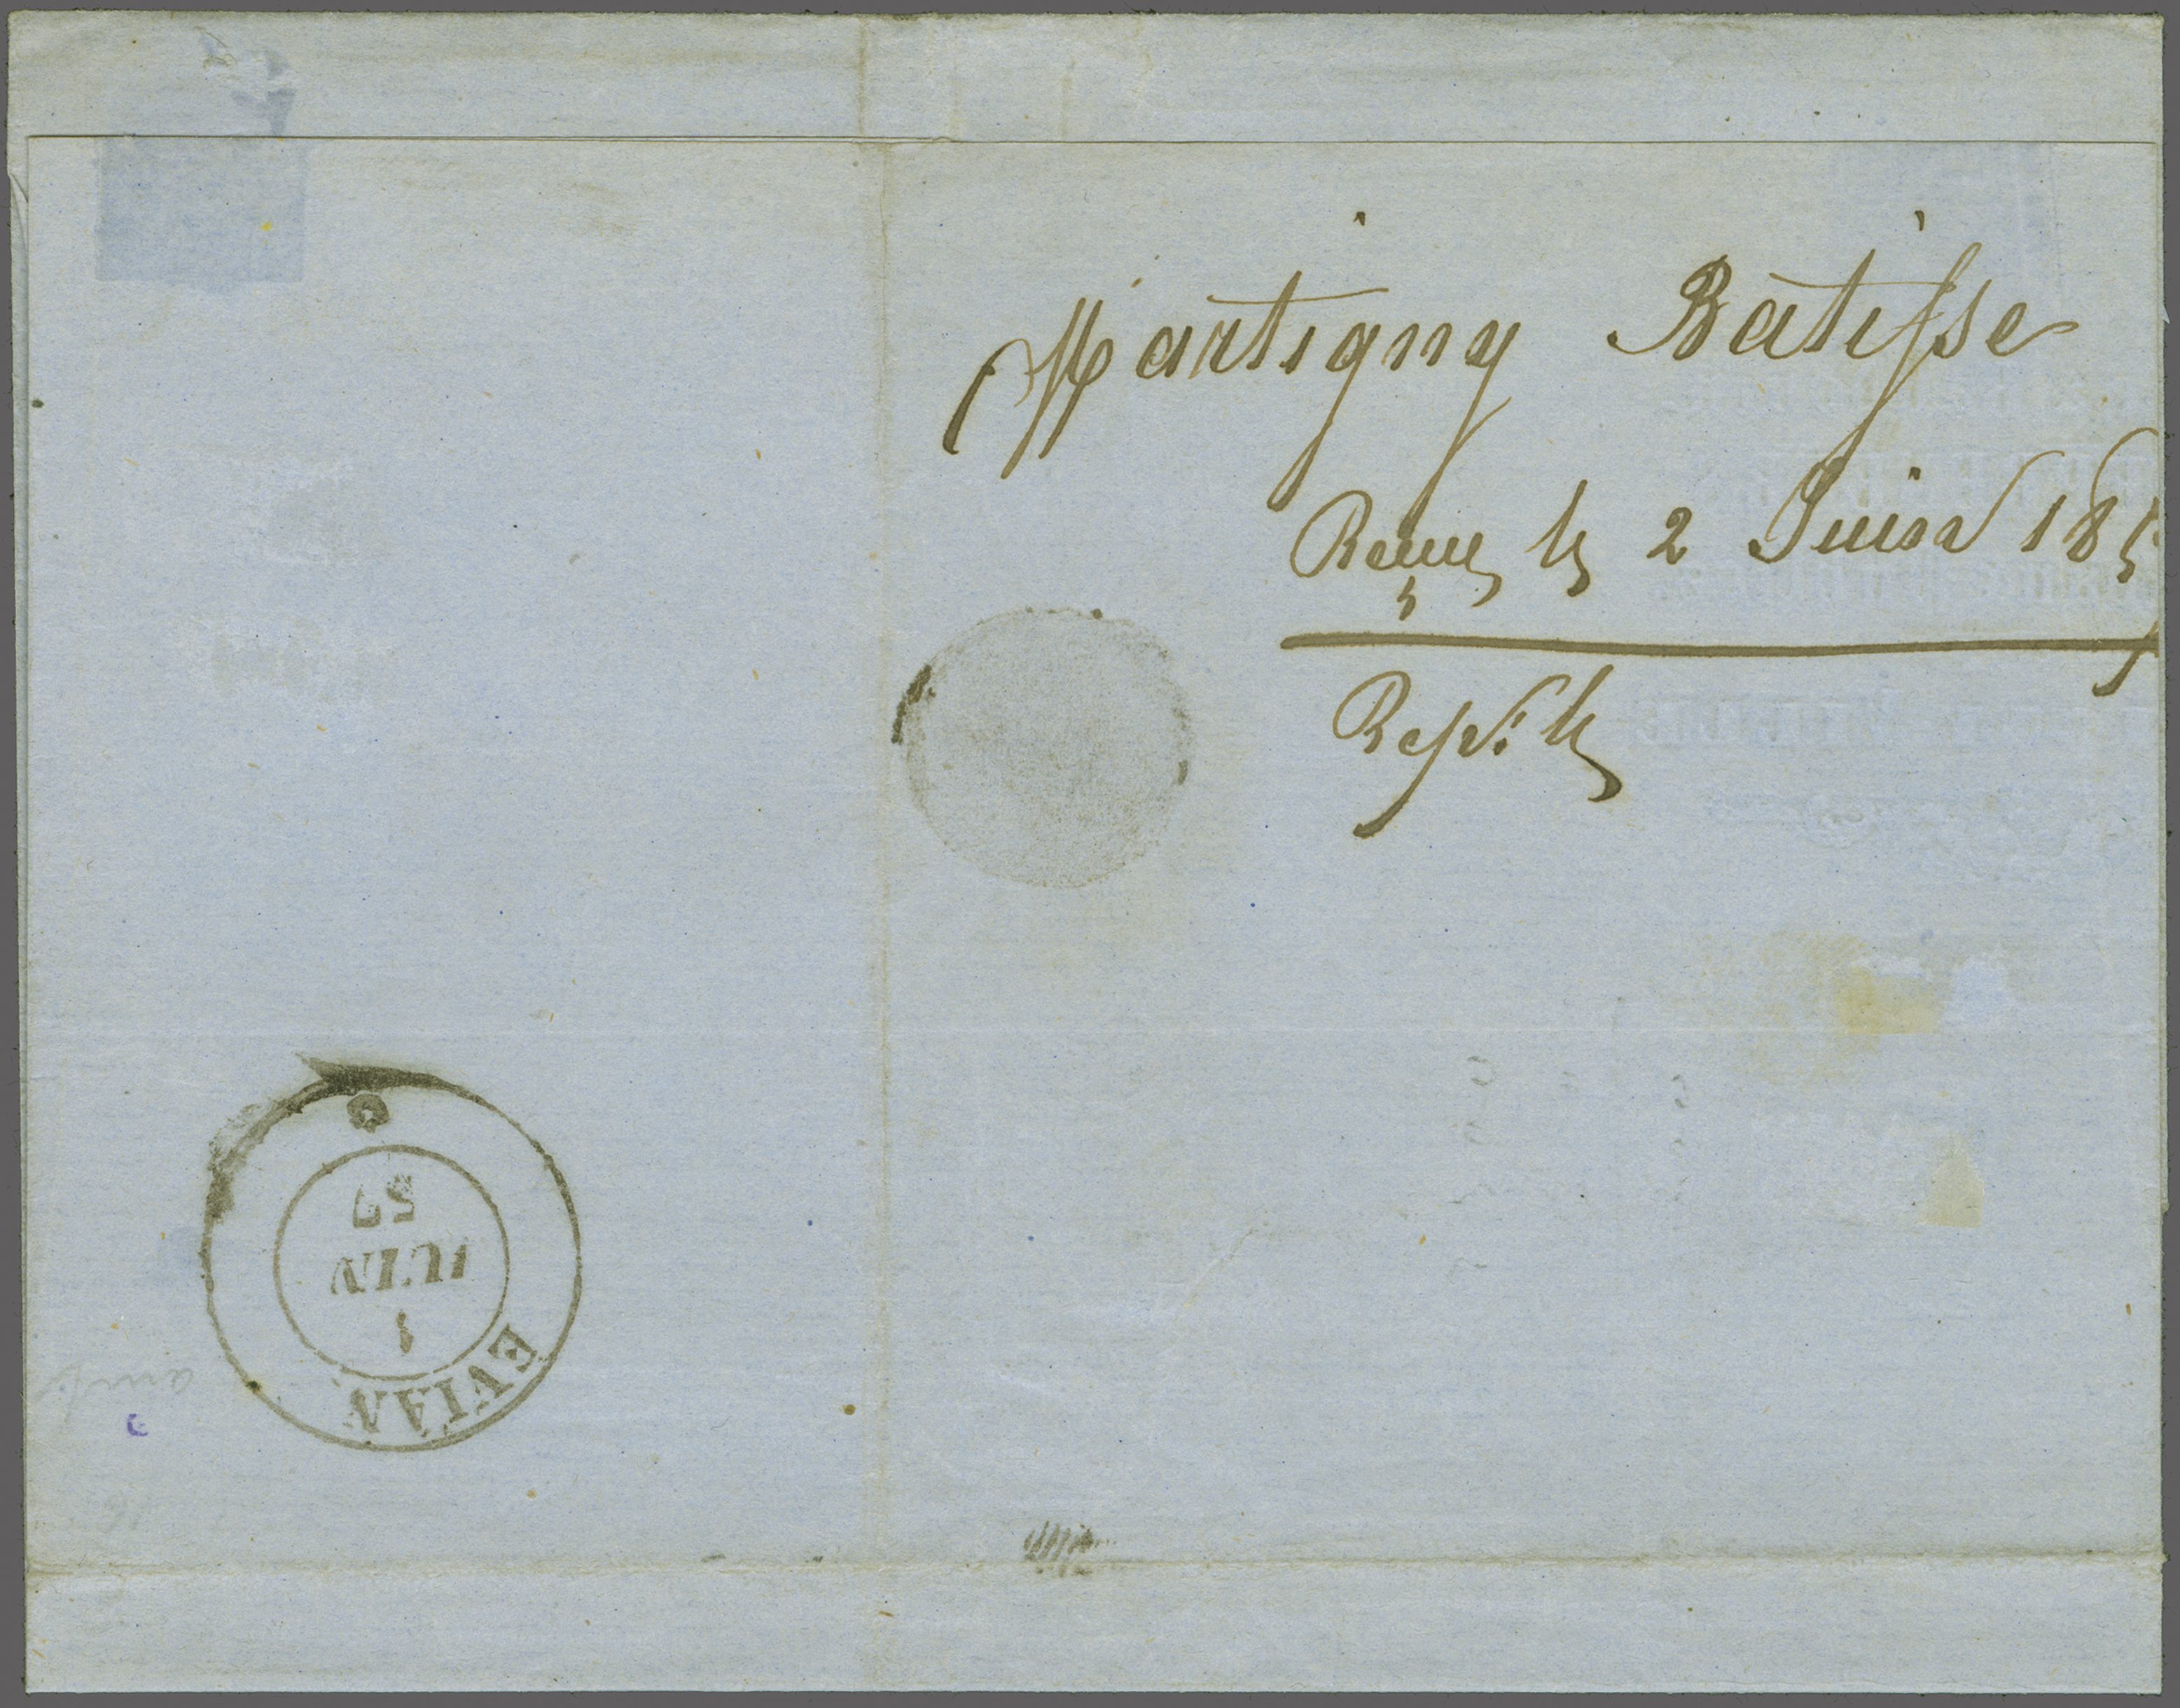 Martigny Batisse
Reçue le 2 Juin 185
Rép. le
EVIAN
1
JUIN
57